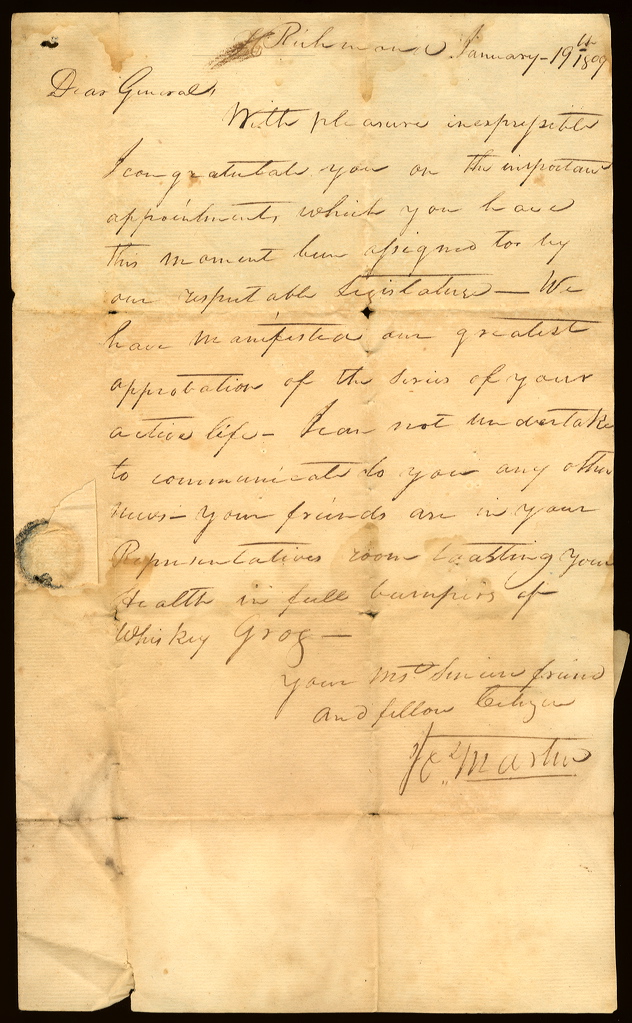 Richmond January - 19th 1809
Dear General,
With pleasure inexpressible
I congratulate you on the important
appointments which you have
this moment been assigned too by
our respectable Legislature — We
have manifested our greatest
approbation of the series of your
active life — I can not undertake
to communicate to you any other
news — your friends are in your
Representatives room toasting your
Health in full bumpers of
Whiskey Grog —
Your Mst. Sincere friend
And fellow Citizen
Martin